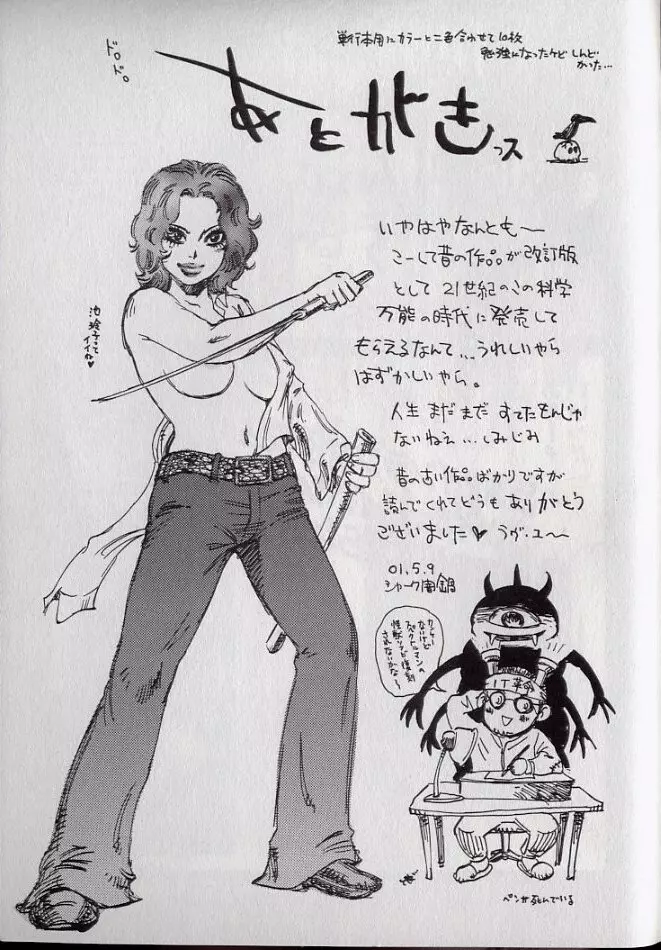 単行本用にカラーと二色合わせて10枚
勉強になったケド しんど
かった…
ドロ。
ドロ。
あとがきっス
いやはやなんとも〜
こーして昔の作品が改訂版
として21世紀のこの科学
万能の時代に発売して
もらえるなんて…うれしいやら
はずかしいやら。
人生 まだ まだ すてたもんじゃ
ないねぇ…しみじみ
昔の古い作品ばかりですが
読んでくれてどうも ありがとう
ございました♥ うが・ユ〜
01.5.9
シャーク闇鍋
池玲子って
イイね♥
ないけど
スペクトルマンの
怪獣ソフビ復刻
されないかな〜
IT革命
ペンが死んでいる